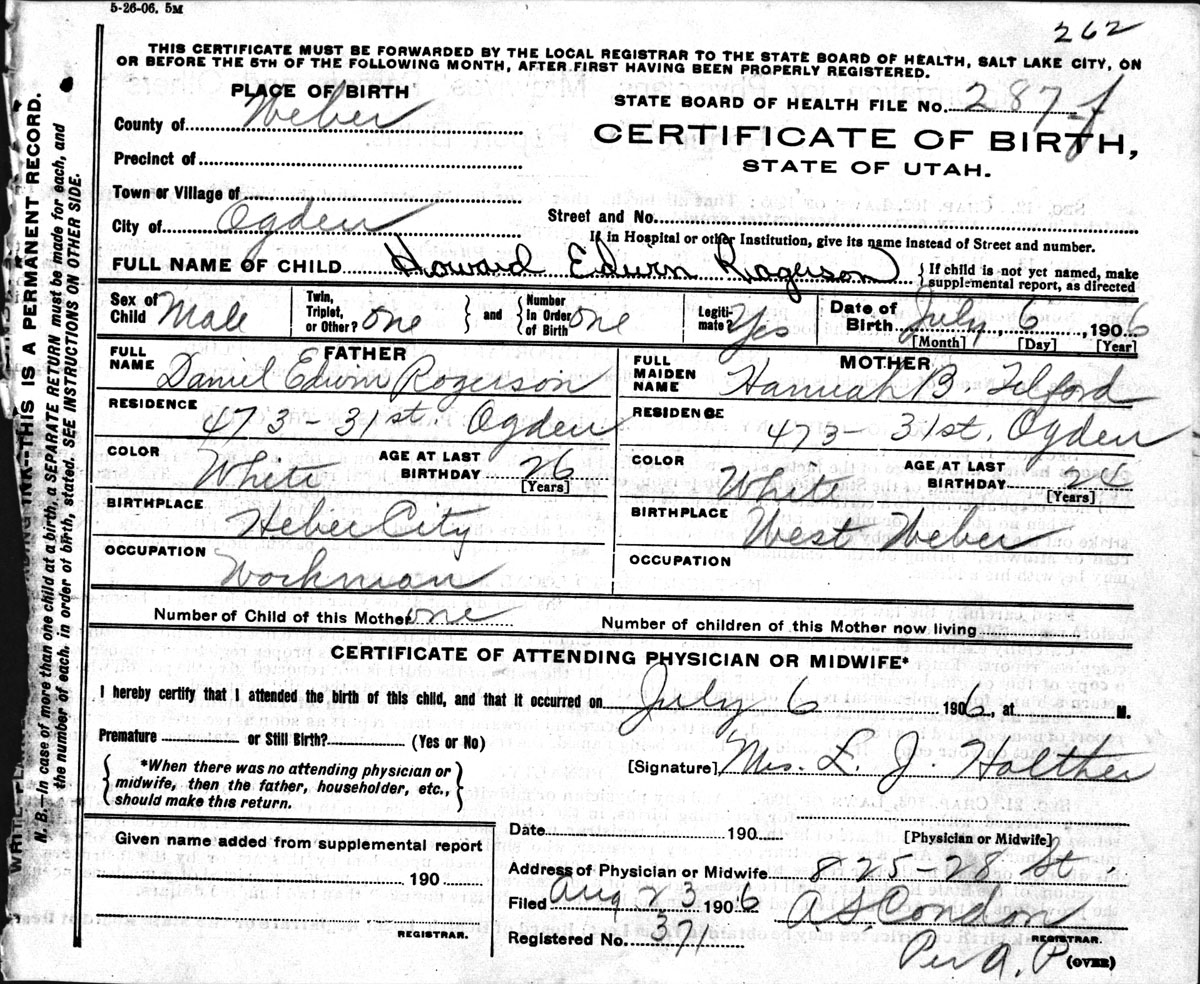 5-26-06. 5M
262
THIS CERTIFICATE MUST BE FORWARDED BY THE LOCAL REGISTRAR TO THE STATE BOARD OF HEALTH, SALT LAKE CITY, ON
OR BEFORE THE 5TH OF THE FOLLOWING MONTH, AFTER FIRST HAVING BEEN PROPERLY REGISTERED.
PLACE OF BIRTH
STATE BOARD OF HEALTH FILE No. 287 f
County of Weber
CERTIFICATE OF BIRTH,
Precinct of
STATE OF UTAH.
Town or Village of
City of Ogden
Street and No.
If in Hospital or other Institution, give its name instead of Street and number.
FULL NAME OF CHILD Howard Edwin Rogerson { If child is not yet named, make
supplemental report, as directed
Sex of Child Male
Twin, Triplet, or Other? one } and { Number In Order of Birth one
Legiti-mate? Yes
Date of Birth July 6, 1906
[Month] [Day] [Year]
FATHER
FULL NAME Daniel Edwin Rogerson
RESIDENCE 473-31st. Ogden
COLOR White AGE AT LAST BIRTHDAY 26
[Years]
BIRTHPLACE Heber City
OCCUPATION Workman
MOTHER
FULL MAIDEN NAME Hannah B Telford
RESIDENCE 473-31st. Ogden
COLOR White AGE AT LAST BIRTHDAY 24
[Years]
BIRTHPLACE West Weber
OCCUPATION
Number of Child of this Mother one
Number of children of this Mother now living
CERTIFICATE OF ATTENDING PHYSICIAN OR MIDWIFE*
I hereby certify that I attended the birth of this child, and that it occurred on July 6 1906, at M.
Premature or Still Birth? (Yes or No)
{ *When there was no attending physician or
midwife, then the father, householder, etc.,
should make this return. }
[Signature] Mrs. L. J. Holther
[Physician or Midwife]
Given name added from supplemental report
190
REGISTRAR.
Date 190
Address of Physician or Midwife 825-28 St
Filed Aug 23 1906 A. S. Condon
REGISTRAR.
Registered No. 371
Per A. P.
(OVER)
WRITE PLAINLY
INK—THIS IS A PERMANENT RECORD.
N. B.—In case of more than one child at a birth, a SEPARATE RETURN must be made for each, and
the number of each, in order of birth, stated. SEE INSTRUCTIONS ON OTHER SIDE.